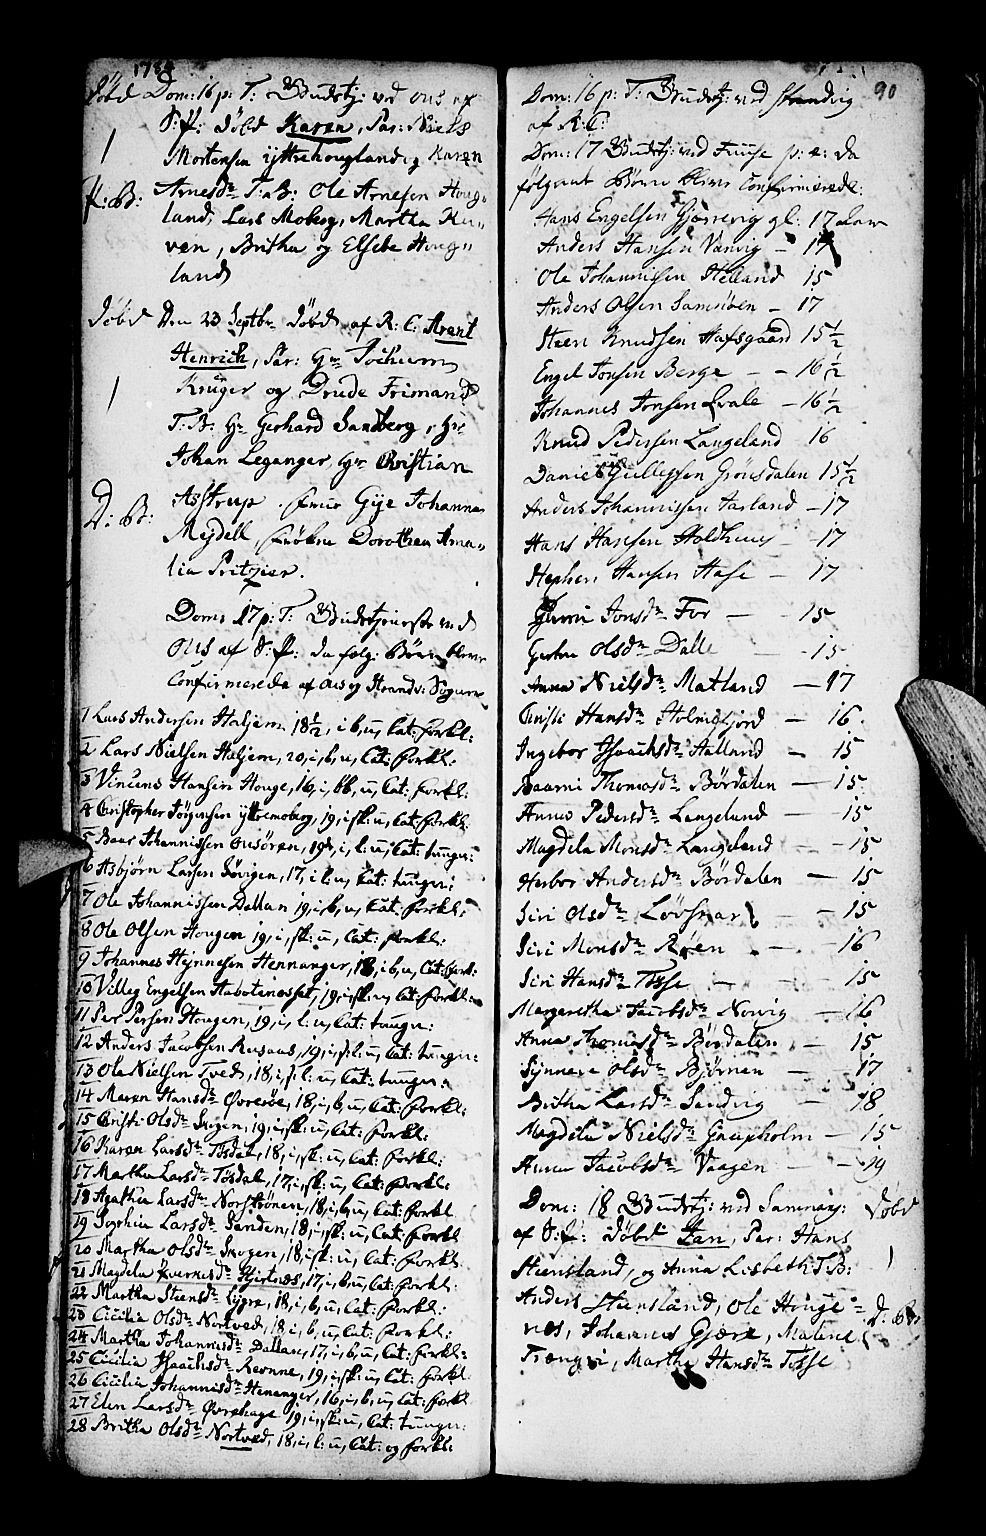 1784
Døbd Dom: 16 p: T: Gudstj: ved Ous af
S: P: Døbd Karen, Par: Niels
1 Mortensen yttrehougland og Karen
P: B: Arnesdr T: B: Ole Arnesen Houg-
land, Lars Moberg, Martha
ven, Britha og Elsebe Houg-
land
Døbd Den 23 Septbr Døbd af R: C: Arent
Henrich, Par: Hr Jochum
1 Krüger og Drude Frimand
T: B: Hr Gerhard Sandberg, Hr
Johan Leganger, Hr Christian
D: B: Astrup, Gije Johanna
Mejdell, Frøken Dorothea Ama-
lia Pritzier.
Dom: 17 p: T: Gudstjeneste ved
Ous af S: P: da følg: Børn bleve
Confirmerede af Ous og Strandv: Sogne
1 Lars Andersen Haljem 18 1/2, i b, u, Cat: Forkl:
2 Lars Nielsen Haljem, 20, i, b, u, Cat: Forkl:
3 Vincens Hansen Houge, 16, i, bb, u, Cat: Forkl:
4 Christopher Jørgensen yttremoberg, 19, i sk: u, Cat: Forkl:
5 Baar Johannissen Ousøren, 19, i, l: u, Cat: tungn:
6 Asbjørn Larsen Søvigen, 17, i l: u, Cat: tungn:
7 Ole Johannissen Dallan 19, i, b, u, Cat: Forkl:
8 Ole Olsen Hougen 19, i, sk: u, Cat: Forkl:
9 Johannes Hennanger, 18, i b, u, Cat: Forkl:
10 Villeg Engelsen, 19, i sk: u, Cat: Forkl:
11 Per Persen Hougen, 19, i, l: u, Cat: tungn:
12 Anders Jacobsen Rusaas, 19, i, sl: u, Cat: tungn:
13 Ole Nielsen Tved, 18, i, sl: u, Cat: tungn:
14 Maren Hansdr Øvresøe, 18, i, b, u, Cat: Forkl:
15 Christi Olsdr Skogen, 19, i, sk: u, Cat: Forkl:
16 Karen Larsdr Tøsdal, 18, i, sk: u, Cat: Forkl:
17 Martha Larsdr Tøsdal, 17, i, sk: u, Cat: Forkl:
18 Agatha Larsdr Norstrønen, 18, i, b, u, Cat: Forkl
19 Sophia Larsdr Sanden, 18, i, sk: u, Cat: Forkl:
20 Martha Olsdr Skogen, 18, i sk: u, Cat: Forkl:
21 Magdela Hjertnæs, 17, i, b, u, Cat: Forkl:
22 Martha Steensdr Lysøe, 18, i, b, u, Cat: Forkl:
23 Cicilia Olsdr Nortved, 18 i, b, u, Cat: Forkl:
24 Martha Johannisdr Dallan, 17, i, b, u, Cat: Forkl:
25 Cicilia Isaachsdr Revnne, 19, i, sk: u, Cat: Forkl:
26 Cicilia Johannisdr Henanger, 16, i, b, u, Cat: Forkl
27 Elen Larsdr Øvrehage 19, i, sk: u, Cat: tungn:
28 Britha Olsdr Nortved, 18, i, l: u, Cat: og Forkl:
90
Dom: 16 p: T: Gudstj: ved Strandvig
af R: C:
Dom: 17 Gudstj: ved Fuuse p: e: da
følgende Børn bleve Confirmerede:
Hans Engelsen Gjærevig gl: 17 Aar
Anders Hansen Vinvig – 17
Ole Johannissen Helland 15
Anders Olsen Samnøen – 17
Steen Knudsen Hafsgaard 15 1/2
Engel Jonsen Berge – – 16 1/2
Johannes Jonsen Qvale – 16 1/2
Knud Pedersen Langeland 16
Daniel Gullegsen Grønsdalen 15 1/2
Anders Johannissen Aarland – 17
Hans Hansen Holdhuus – 17
Stephen Hansen Hafse – 17
Jonsdr For – 15
Olsdr Dalle – 15
Anna Nielsdr Matland – 17
Christi Hansdr Holmefjord – 16
Ingebor Isaachsdr Halland – 15
Baarni Thomasdr Børdalen – 15
Anna Pedersdr Langeland – 15
Magdela Monsdr Langeland – 15
Herbor Andersdr Børdalen – 15
Siri Olsdr – 15
Siri Monsdr Røen – 16
Siri Hansdr Tøsse – 15
Margretha Jacobsdr Novig – 16
Anna Thomasdr Børdalen – 15
Synneve Olsdr Bjørnen – 17
Britha Larsdr Sandvig – 18
Magdela Nielsdr Gneepholm – 15
Anna Jacobsdr Vaagen – 19
Dom: 18 Gudstj: ved Samnøy: Døbd
af S: P: Døbd Jan, Par: Hans
Steensland, og Anna Lisbeth T: B: 1
Anders Steensland, Ole Houge- D: B:
nes, Johannes Gjære, Malene
Trengri, Martha Hansdr Tøsse